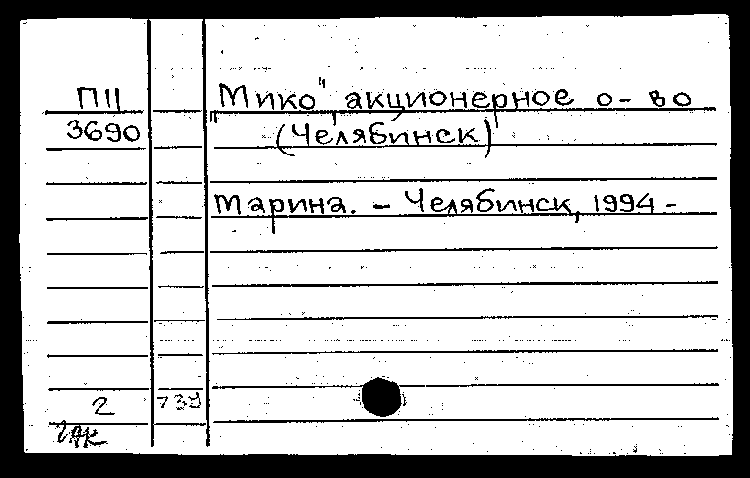 П11 "Мико" акционерное о-во
3690 (Челябинск)
Марина. - Челябинск, 1994 -
2 739